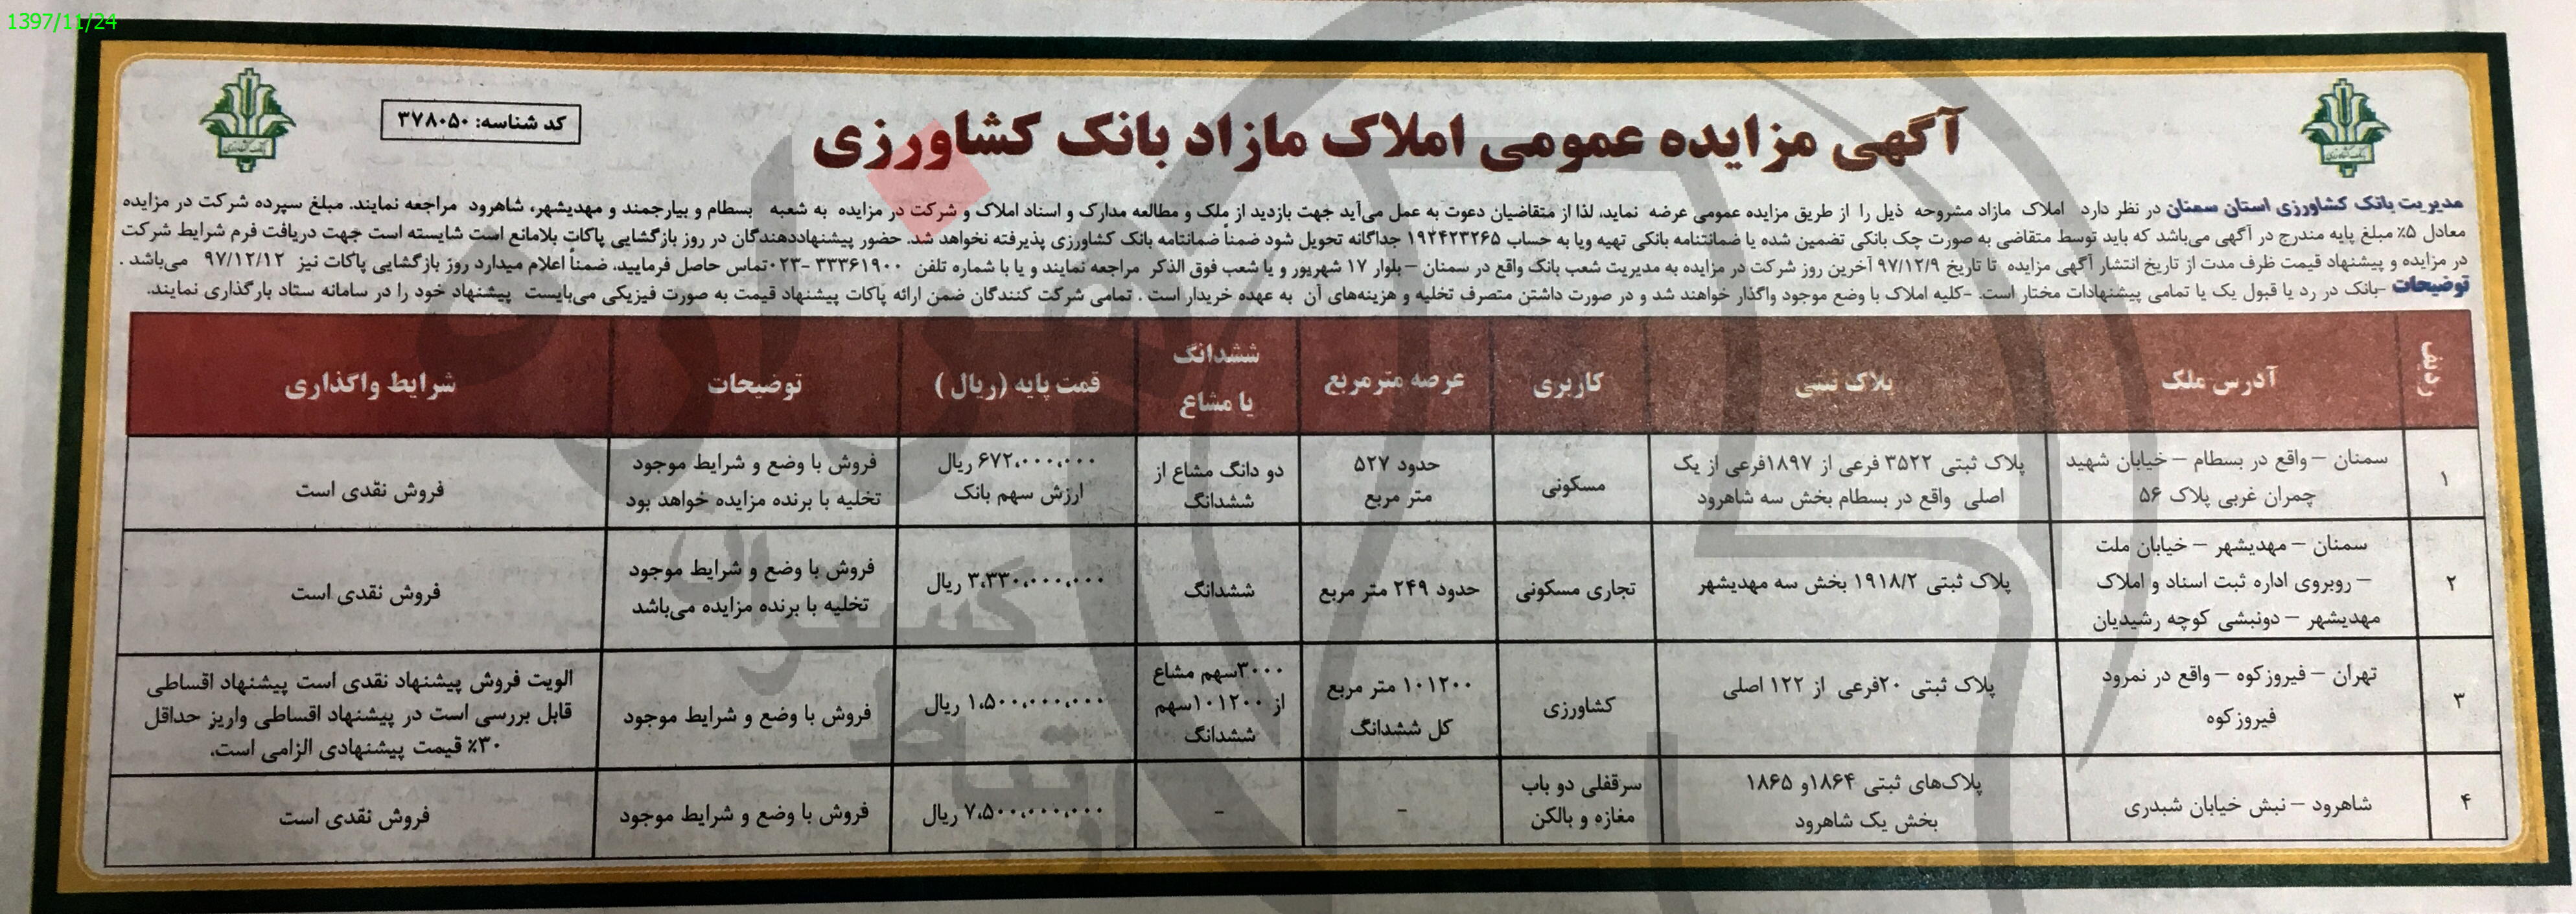 1397/11/24
آگهی مزایده عمومی املاک مازاد بانک کشاورزی
کد شناسه: ۳۷۸۰۵۰
مدیریت بانک کشاورزی استان سمنان در نظر دارد املاک مازاد مشروحه ذیل را از طریق مزایده عمومی عرضه نماید، لذا از متقاضیان دعوت به عمل می‌آید جهت بازدید از ملک و مطالعه مدارک و اسناد املاک و شرکت در مزایده به شعبه بسطام و بیارجمند و مهدیشهر، شاهرود مراجعه نمایند. مبلغ سپرده شرکت در مزایده
معادل ۵٪ مبلغ پایه مندرج در آگهی می‌باشد که باید توسط متقاضی به صورت چک بانکی تضمین شده یا ضمانتنامه بانکی تهیه ویا به حساب ۱۹۲۴۲۳۲۶۵ جداگانه تحویل شود ضمناً ضمانتامه بانک کشاورزی پذیرفته نخواهد شد. حضور پیشنهاددهندگان در روز بازگشایی پاکات بلامانع است شایسته است جهت دریافت فرم شرایط شرکت
در مزایده و پیشنهاد قیمت ظرف مدت از تاریخ انتشار آگهی مزایده تا تاریخ ۹۷/۱۲/۹ آخرین روز شرکت در مزایده به مدیریت شعب بانک واقع در سمنان – بلوار ۱۷ شهریور و یا شعب فوق الذکر مراجعه نمایند و یا با شماره تلفن ۳۳۳۶۱۹۰۰ -۰۲۳تماس حاصل فرمایید، ضمناً اعلام میدارد روز بازگشایی پاکات نیز ۹۷/۱۲/۱۲ می‌باشد .
توضیحات -بانک در رد یا قبول یک یا تمامی پیشنهادات مختار است. -کلیه املاک با وضع موجود واگذار خواهند شد و در صورت داشتن متصرف تخلیه و هزینه‌های آن به عهده خریدار است . تمامی شرکت کنندگان ضمن ارائه پاکات پیشنهاد قیمت به صورت فیزیکی می‌بایست پیشنهاد خود را در سامانه ستاد بارگذاری نمایند.
ردیف
آدرس ملک
پلاک ثبتی
کاربری
عرصه مترمربع
ششدانگ
یا مشاع
قمت پایه (ریال )
توضیحات
شرایط واگذاری
۱
سمنان – واقع در بسطام – خیابان شهید
چمران غربی پلاک ۵۶
پلاک ثبتی ۳۵۲۲ فرعی از ۱۸۹۷فرعی از یک
اصلی واقع در بسطام بخش سه شاهرود
مسکونی
حدود ۵۲۷
متر مربع
دو دانگ مشاع از
ششدانگ
۶۷۲،۰۰۰،۰۰۰ ریال
ارزش سهم بانک
فروش با وضع و شرایط موجود
تخلیه با برنده مزایده خواهد بود
فروش نقدی است
۲
سمنان – مهدیشهر – خیابان ملت
– روبروی اداره ثبت اسناد و املاک
مهدیشهر – دونبشی کوچه رشیدیان
پلاک ثبتی ۱۹۱۸/۲ بخش سه مهدیشهر
تجاری مسکونی
حدود ۲۴۹ متر مربع
ششدانگ
۳،۳۳۰،۰۰۰،۰۰۰ ریال
فروش با وضع و شرایط موجود
تخلیه با برنده مزایده می‌باشد
فروش نقدی است
۳
تهران – فیروزکوه – واقع در نمرود
فیروزکوه
پلاک ثبتی ۲۰فرعی از ۱۲۲ اصلی
کشاورزی
۱۰۱۲۰۰ متر مربع
کل ششدانگ
۳۰۰۰سهم مشاع
از ۱۰۱۲۰۰سهم
ششدانگ
۱،۵۰۰،۰۰۰،۰۰۰ ریال
فروش با وضع و شرایط موجود
الویت فروش پیشنهاد نقدی است پیشنهاد اقساطی
قابل بررسی است در پیشنهاد اقساطی واریز حداقل
۳۰٪ قیمت پیشنهادی الزامی است.
۴
شاهرود – نبش خیابان شبدری
پلاک‌های ثبتی ۱۸۶۴و ۱۸۶۵
بخش یک شاهرود
سرقفلی دو باب
مغازه و بالکن
–
–
۷،۵۰۰،۰۰۰،۰۰۰ ریال
فروش با وضع و شرایط موجود
فروش نقدی است